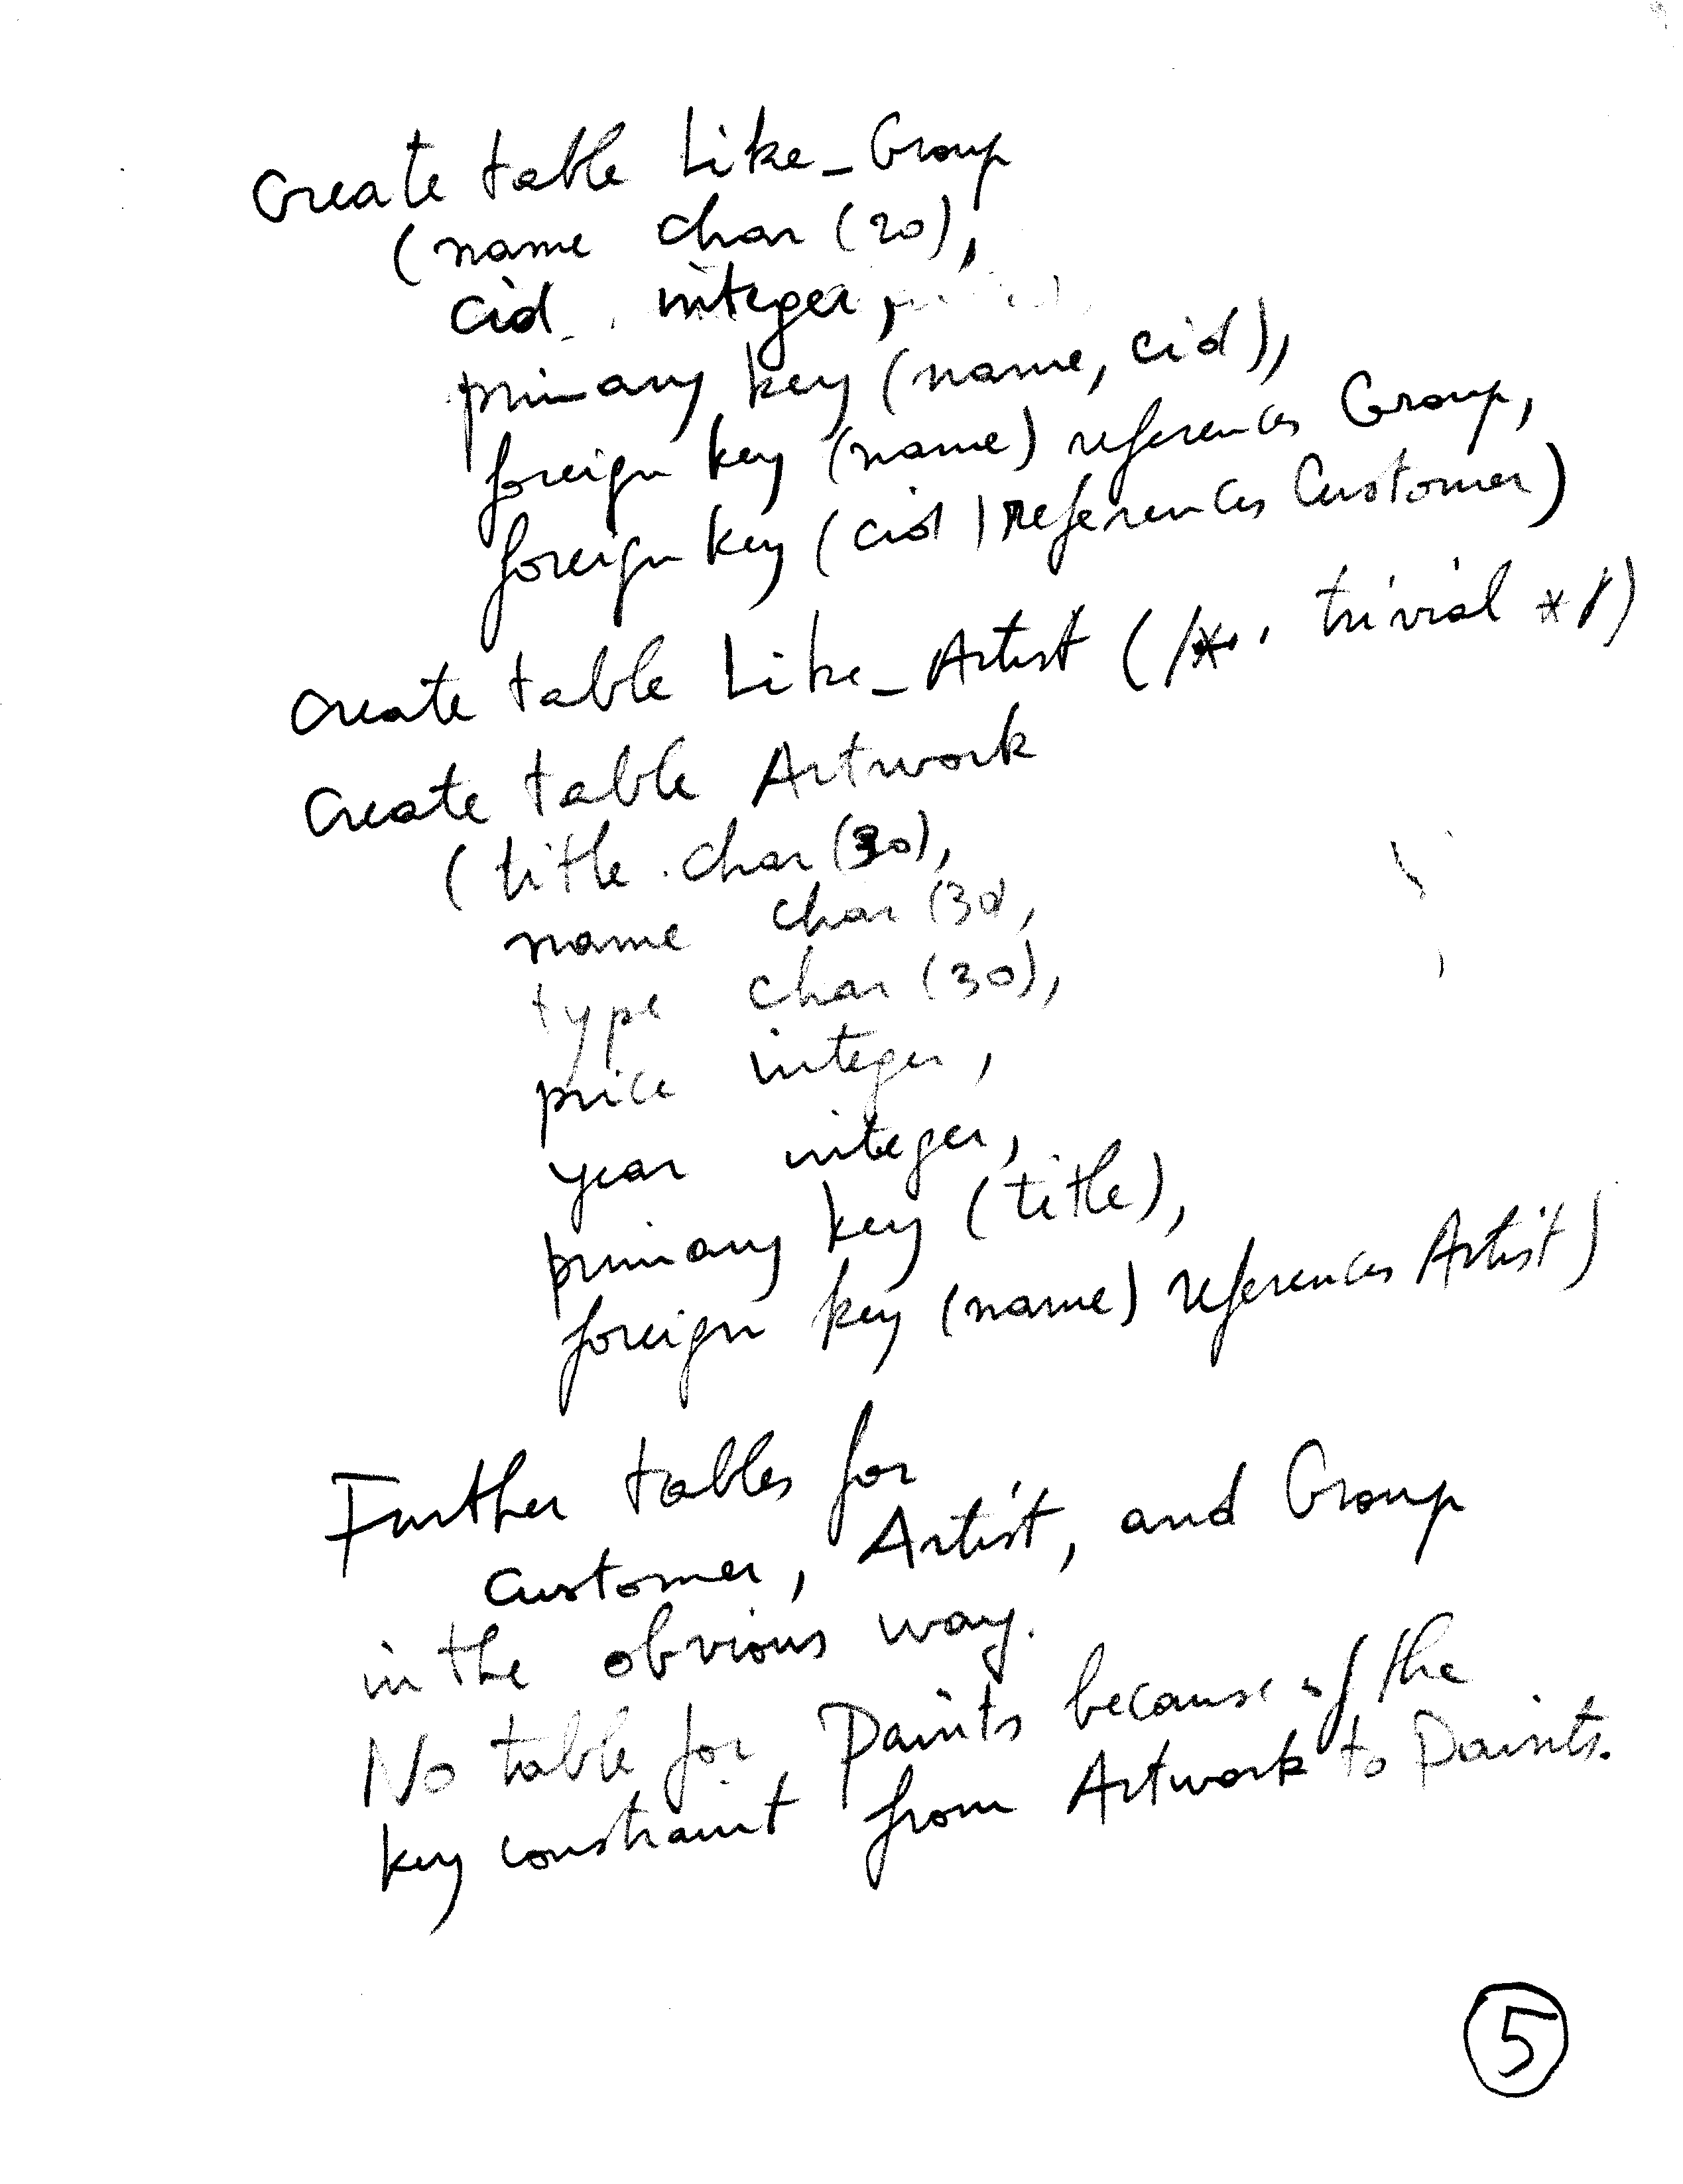 Create table Like_Group
(name char (20),
cid integer,
primary key (name, cid),
foreign key (name) references Group,
foreign key (cid) references Customer)
Create table Like_Artist (/* trivial */)
Create table Artwork
(title char (30),
name char (30,
type char (30),
price integer,
year integer,
primary key (title),
foreign key (name) references Artist)
Further tables for
Customer, Artist, and Group
in the obvious way.
No table for Paints because of the
key constraint from Artwork to Paints.
5